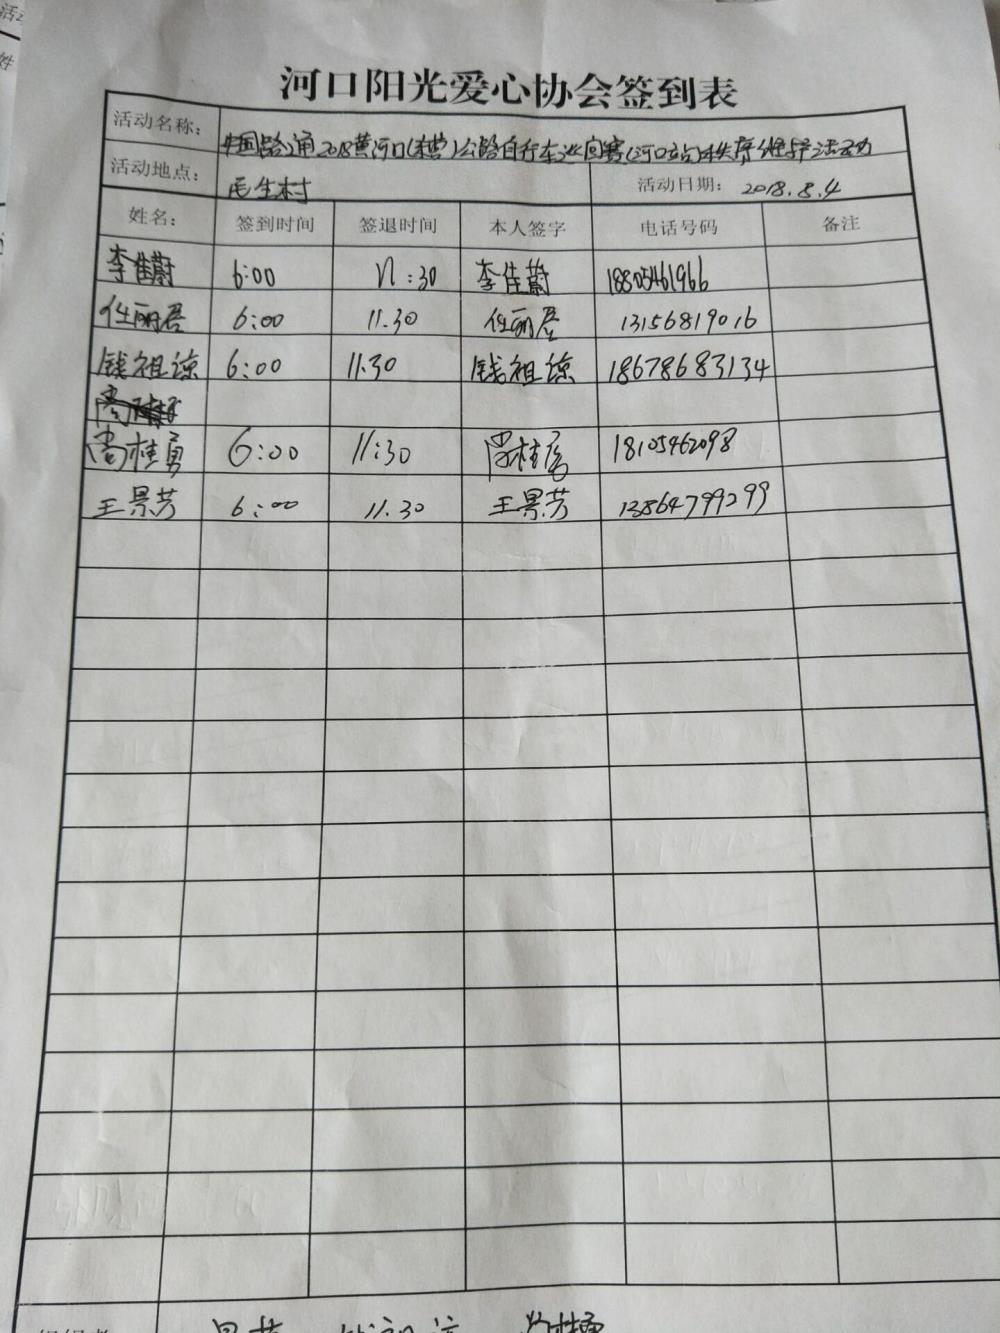 河口阳光爱心协会签到表
活动名称： 中国路通2018黄河口(东营)公路自行车巡回赛(河口站)秩序维护活动
活动地点： 毛生村 活动日期： 2018.8.4
姓名： 签到时间 签退时间 本人签字 电话号码 备注
李佳蔚 6:00 11:30 李佳蔚 18805461966
任丽居 6:00 11.30 任丽居 13156819016
钱祖谅 6:00 11:30 钱祖谅 18678683134
尚桂勇 6:00 11:30 尚桂勇 18105462098
王景芳 6:00 11.30 王景芳 13864799299
景芳 尚桂勇